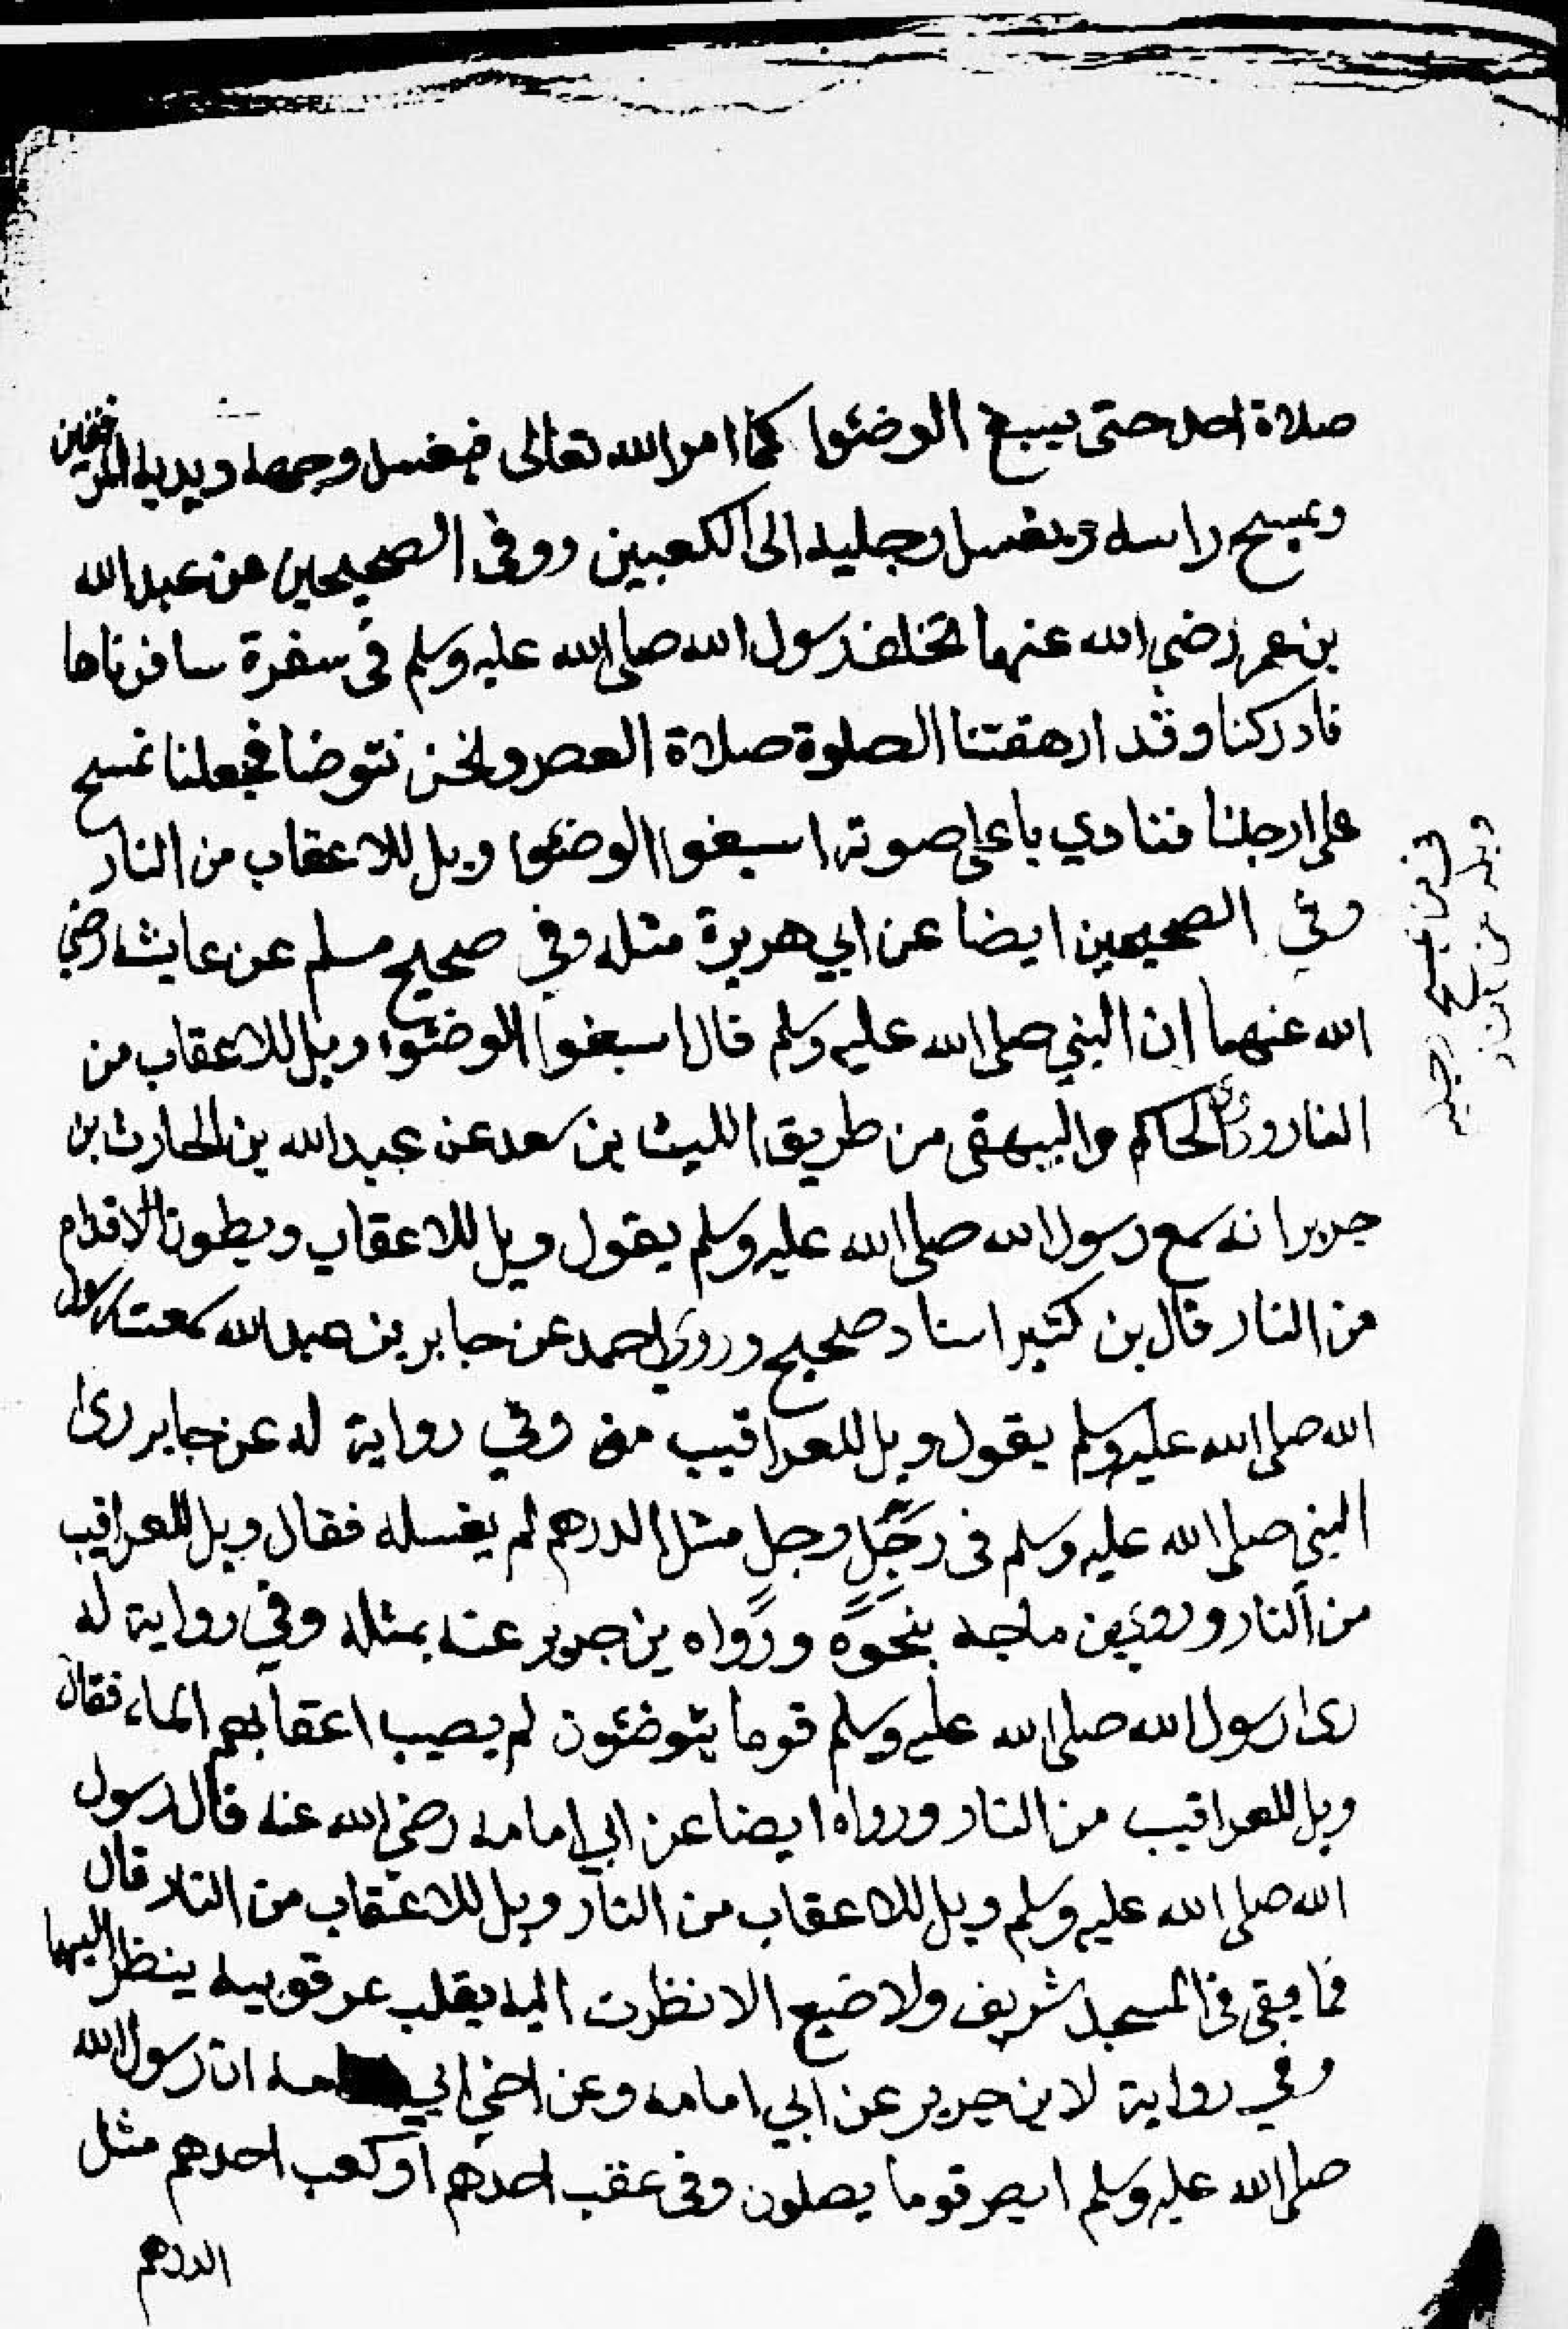 صلاة احد حتى يسبغ الوضئوا كما امر الله تعالى فيغسل وجهه ويديه الى المرفقين
ويمسح راسه ويغسل رجليه الى الكعبين وروفى الصحيحين عن عبد الله
بن عمر رضي الله عنهما تخلف رسول الله صلى الله عليه وسلم فى سفرة سافرناها
فادركنا وقد ارهقتنا الصلوة صلاة العصر ونحن نتوضا فجعلنا نمسح
على ارجلنا فنادي باعلى صوته اسبغوا الوضئوا ويل للاعقاب من النار
وفي الصحيحين ايضا عن ابي هريرة مثله وفي صحيح مسلم عن عايشه رضي
الله عنهما ان النبي صلى الله عليه وسلم قال اسبغوا الوضئوا ويل للاعقاب من
النار وروى الحاكم والبيهقى من طريق الليث بن سعد عن عبد الله بن الحارث بن
جرير انه سمع رسول الله صلى الله عليه وسلم يقول ويل للاعقاب وبطون الاقدام
من النار قال بن كثير اسناد صحيح وروي احمد عن جابر بن عبد الله سمعت رسول
الله صلى الله عليه وسلم يقول ويل للعراقيب من وفي رواية له عن جابر رى
النبي صلى الله عليه وسلم فى رجل رجل مثل الدرهم لم يغسله فقال ويل للعراقيب
من النار وروي بن ماجه بنحوه ورواه بن جرير عنه بمثله وفي رواية له
رى رسول الله صلى الله عليه وسلم قوما يتوضئون لم يصيب اعقابهم الماء فقال
ويل للعراقيب من النار ورواه ايضا عن ابي امامه رضي الله عنه قال رسول
الله صلى الله عليه وسلم ويل للاعقاب من النار ويل للاعقاب من النار قال
فما بقى فى المسجد شريف ولا ضيع الا نظرت اليه يقلب عرقوبيه ينظر اليهما
وفي رواية لابن جرير عن ابي امامه وعن اخي ابي امامه ان رسول الله
صلى الله عليه وسلم ابصر قوما يصلون وفى عقب احدهم او كعب احدهم مثل
الدرهم